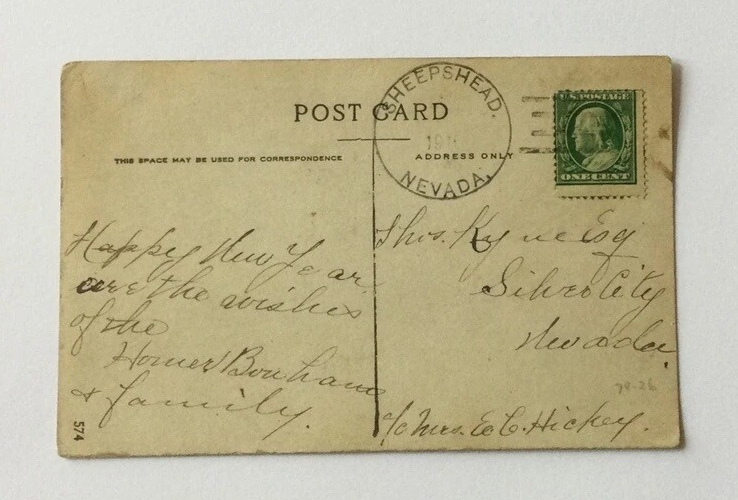 POST CARD
THIS SPACE MAY BE USED FOR CORRESPONDENCE
ADDRESS ONLY
SHEEPSHEAD.
NEVADA.
U.S. POSTAGE
ONE CENT
Happy New Year
are the wishes
of the
Homer Bonham
& family.
Thos. Kyne Esq
Silver City
Nevada.
c/o Mrs. E. C. Hickey.
574